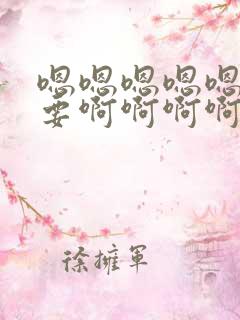 嗯嗯嗯嗯嗯
要啊啊啊啊
徐擁軍